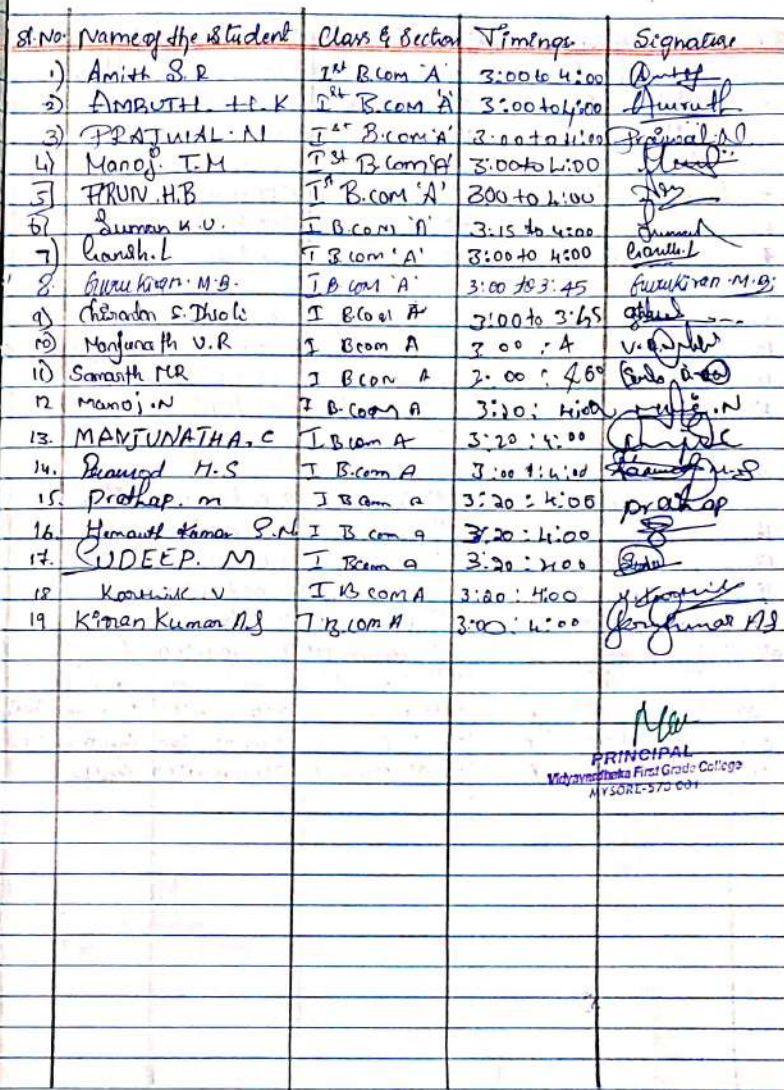 Sl.No. Name of the Student Class & Section Timings Signature
1) Amith S.R Ist B.com 'A' 3:00 to 4:00
2) AMRUTH. H.K Ist B.com 'A' 3:00 to 4:00 Amruth
3) PRAJWAL.N Ist B.com 'A' 3:00 to 4:00 Prajwal.N
4) Manoj. T.M Ist B.com 'A' 3:00 to 4:00
5) ARUN.H.B Ist B.com 'A' 300 to 4:00
6) Suman K.V. I B.com 'A' 3:15 to 4:00 Suman
7) Ganesh.L I B.com 'A' 3:00 to 4:00 Ganesh.L
8. Guru Kiran. M.B. I B com 'A' 3:00 to 3:45 Guru Kiran. M.B.
9) S. I B.com A 3:00 to 3:45
10) Manjunath V.R I Bcom A 3 00 : 4
11) Samarth MR I BCON A
12 Manoj.N I B.Com A 3:20: 4:00
13. MANJUNATHA.C I B com A 3:20 : 4:00
14. Pramod H.S I B.com A 3:00 : 4:00
15. Prathap. m I B com a 3:20 : 4:00 prathap
16. Hemanth Kumar S.N I B com a 3:20 : 4:00
17. SUDEEP. M I Bcom a 3:20 : 4:00
18 Karthik V I B COM A 3:20 : 4:00
19 Kiran Kumar N.S I B.com A 3:00 : 4:00
PRINCIPAL
Vidyavardhaka First Grade College
MYSORE-570 001